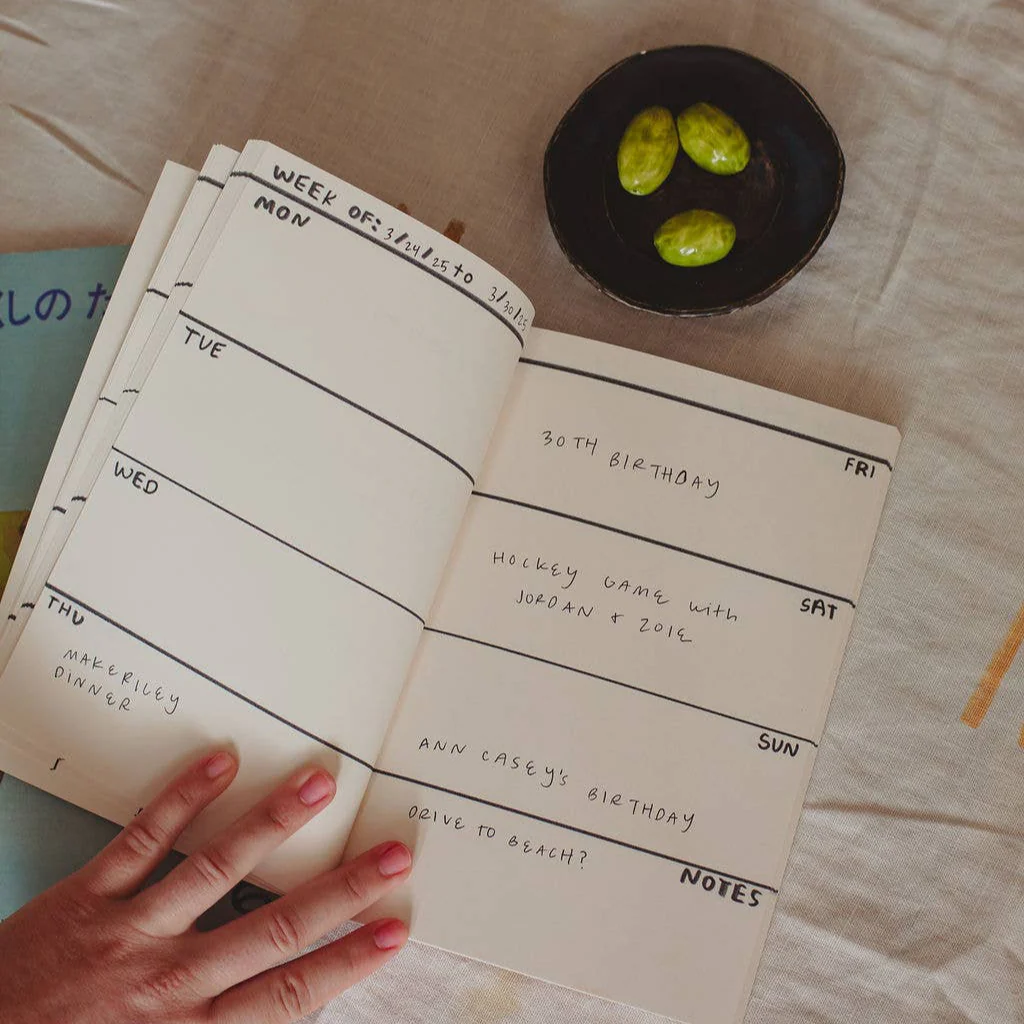 WEEK OF: 3/24/25 to 3/30/25
MON
TUE
WED
THU
MAKE RILEY
DINNER
30TH BIRTHDAY
FRI
HOCKEY GAME with
JORDAN + ZOIE
SAT
ANN CASEY'S BIRTHDAY
SUN
DRIVE TO BEACH?
NOTES
しの た